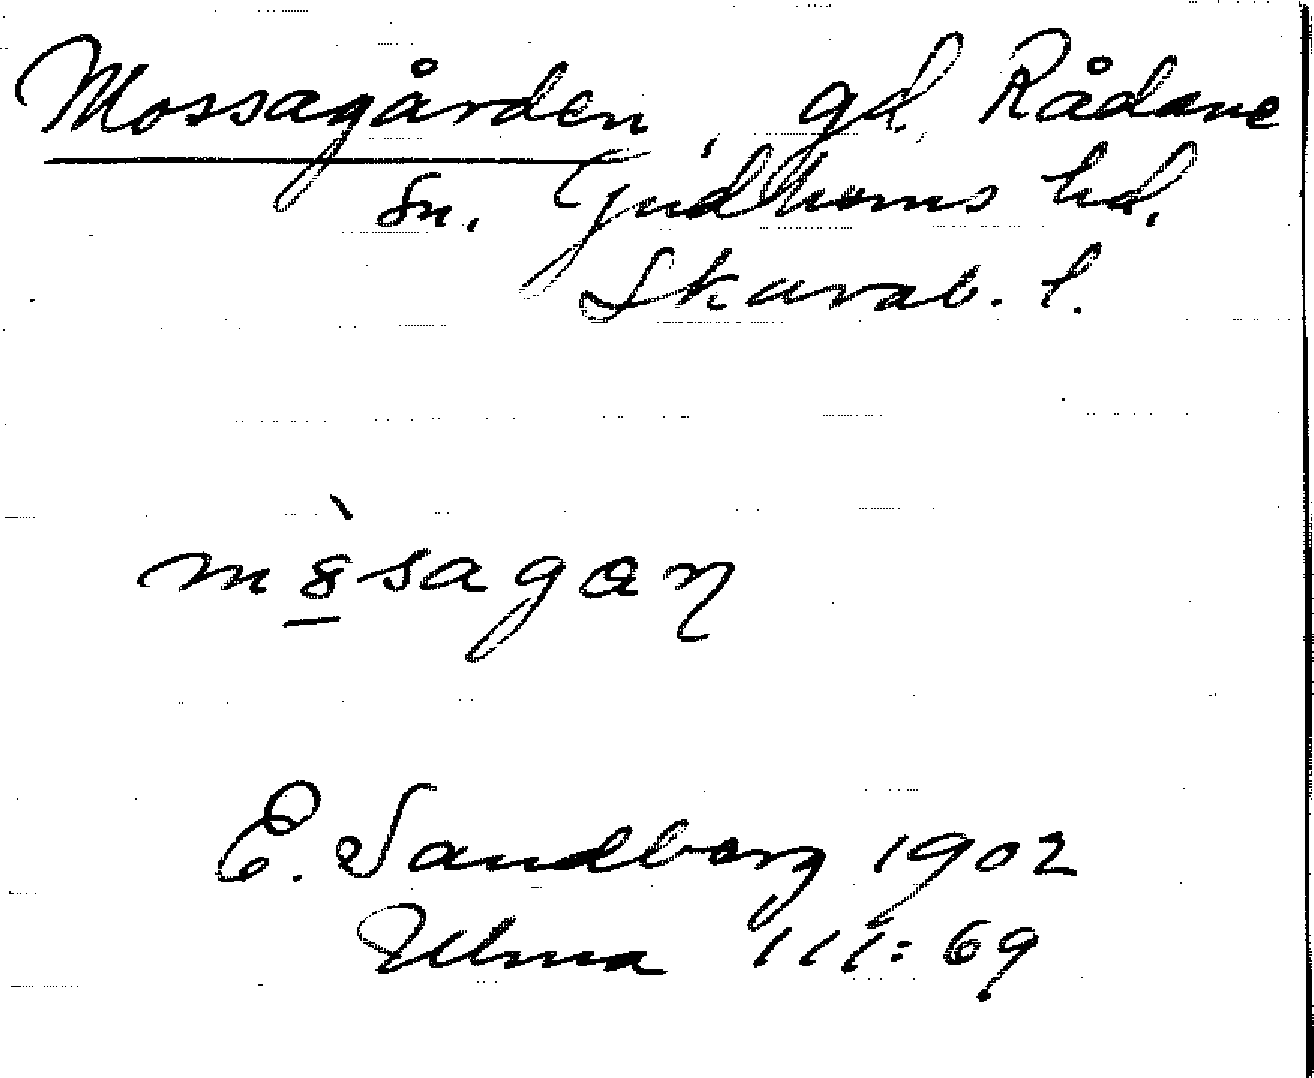 Mossagården, gd, Rådene
sn. Gudhems hd.
Skarab. l.
E. Sandberg 1902
Ulma 111:69